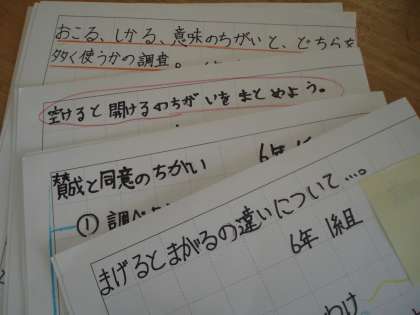 おこる、しかる、意味のちがいと、どちらを
多く使うかの調査。
空けると開けるのちがいをまとめよう。
賛成と同意のちがい
6年
① 調べ
まげるとまがるの違いについて…。
6年 1組
わけ